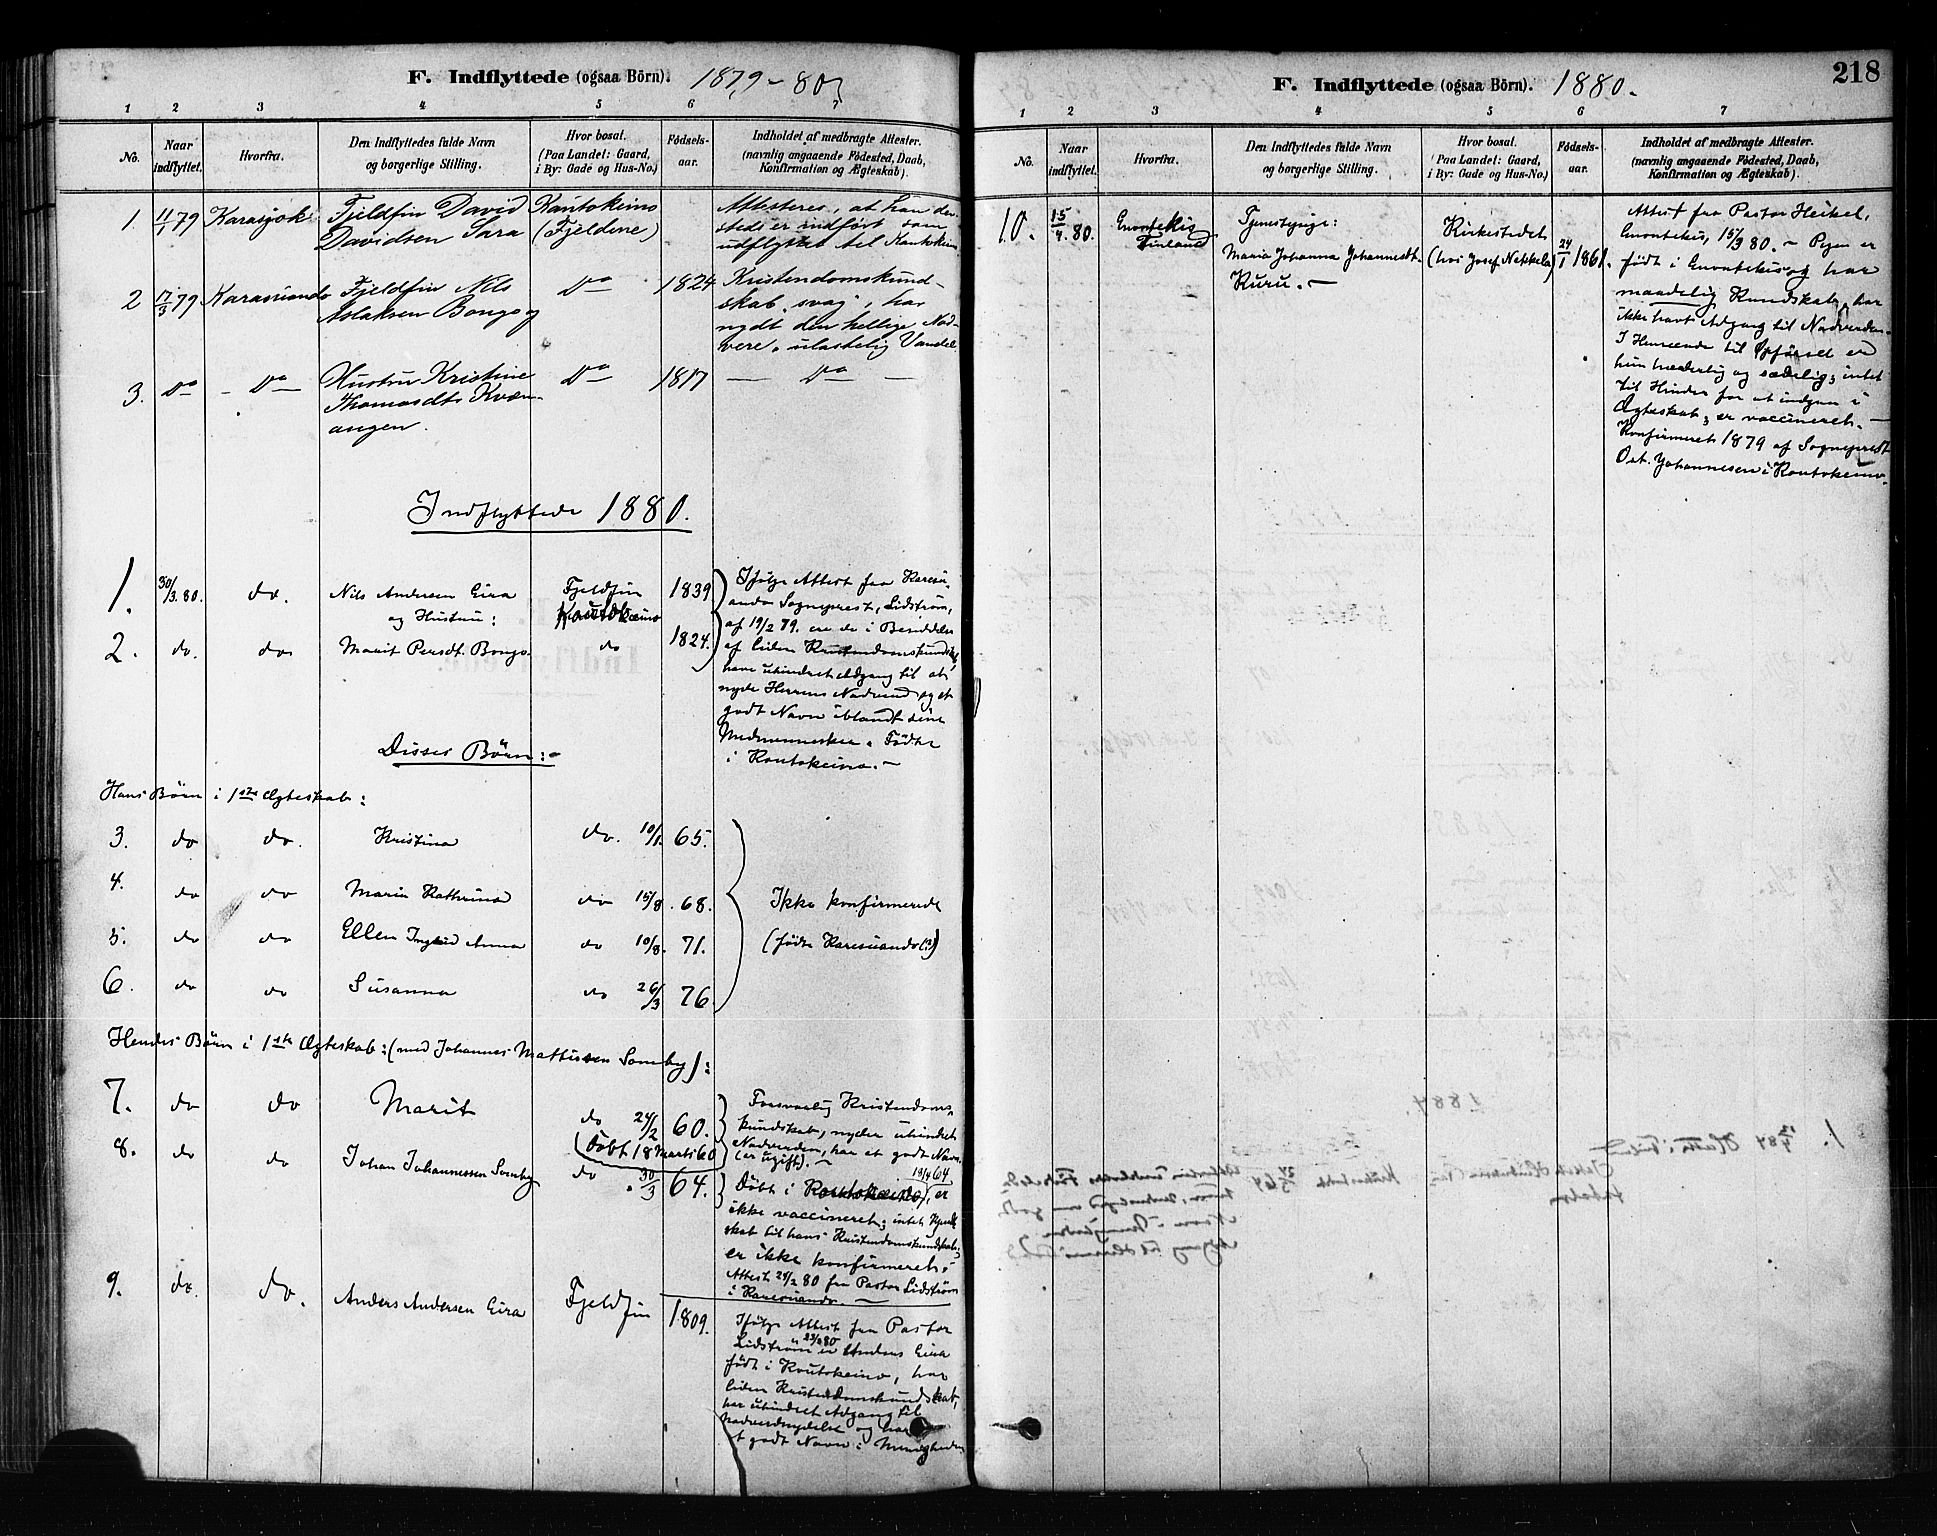 F. Indflyttede (ogsaa Börn). 1879-80
1 2 3 4 5 6 7
No. Naar indflyttet. Hvorfra. Den Indflyttedes fulde Navn og borgerlige Stilling. Hvor bosat. (Paa Landet: Gaard, i By: Gade og Hus-No.) Födsels-aar. Indholdet af medbragte Attester. (navnlig angaaende Födested, Daab, Konfirmation og Ægteskab).
1. 11/1 79 Karasjok Fjeldfin David Kautokeino Attesteres, at han der-
Davidsen Sara (Fjeldene) steds er indført som
udflyttet til Kautokeino
2 17/3 79 Karasuando Fjeldfin Nils Do 1824 Kristendomskund-
Aslaksen Bongo skab svag, har
nydt den hellige Nad-
vere, ulastelig Vandel.
3. Do - Do Hustru Kristine Do 1817 - Do -
Thomasdtr Kvæn-
angen.
Indflyttede 1880.
1. 30/3. 80. do. Nils Andersen Eira Fjeldfin 1839
og Hustru: Kautokeino
2. do. do Marit Persdt. Bongo. do 1824.
Ifølge Attest fra Karesu-
ando Sogneprest, Lidstrøm,
af 19/2 79. ere de i Besiddelse
af liden Kristendomskundskab,
have uhindret Adgang til at
nyde Herrens Nadverd og et
godt Navn iblandt sine
Medmennesker. Fødte
i Koutokeino. -
Disses Börn:-
Hans Börn i 1ste Ægteskab:
3. do do. Kristina do. 10/1. 65.
4. do do Maria Kathrina do 15/8. 68. Ikke konfirmerede
5. do do Ellen Ingrid Anna do 10/8. 71. (fødte Karesuando(?))
6. do do Susanna do 26/3 76.
Hendes Börn i 1ste Ægteskab: (med Johannes Mathissen Somby):
7. do do Marit do 24/2 60.
(Döbt 18 Marti 60
Forsvarlig Kristendoms-
kundskab, nyder uhindret
Nadverden, har et godt Navn.
(er ugift). -
8. do do Johan Johannessen Somby do 30/3 64.
Döbt i Koutokeino 19/4 64, er
ikke vaccineret; intet Kjend-
skab til hans Kristendomskundskab;
er ikke konfirmeret.
Attest 24/2 80 fra Pastor Lidstrøm
i Karesuando. -
9. do. do. Anders Andersen Eira Fjeldfin 1809.
Ifølge Attest fra Pastor
Lidstrøm 23/2 80 er Anders Eira
født i Koutokeino, har
liden Kristendomskundskab,
har uhindret Adgang til
Nadverdnydelse og har
et godt Navn i Menigheden
F. Indflyttede (ogsaa Börn). 1880. 218
1 2 3 4 5 6 7
No. Naar indflyttet. Hvorfra. Den Indflyttedes fulde Navn og borgerlige Stilling. Hvor bosat. (Paa Landet: Gaard, i By: Gade og Hus-No.) Födsels-aar. Indholdet af medbragte Attester. (navnlig angaaende Födested, Daab, Konfirmation og Ægteskab).
10. 15/4. 80. Enontekis Tjenestepige: Kirkestedet 24/1 1861.
Finland Maria Johanna Johannesdt. (hos Josef Nekkela)
Kuru. -
Attest fra Pastor Heikel,
Enontekis, 15/3 80. - Pigen er
født i Enontekis og har
maadelig Kundskab, har
ikke havt Adgang til Nadverden.
I Henseende til Opførsel er
hun hæderlig og sædelig; intet
til Hinder for at indgaa i
Ægteskab; er vaccineret. -
Konfirmeret 1879 af Sogneprest
Ost. Johannesen i Koutokeino.